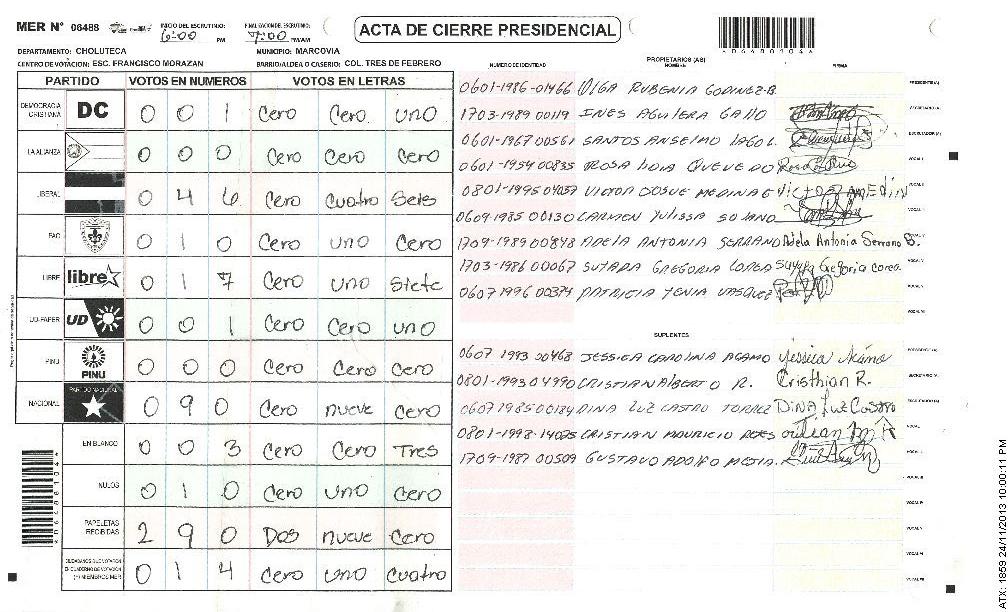 MER N° 06488 INICIO DEL ESCRUTINIO: 6:00 PM FINALIZACION DEL ESCRUTINIO: 7:00 PM/AM
ACTA DE CIERRE PRESIDENCIAL
DEPARTAMENTO: CHOLUTECA MUNICIPIO: MARCOVIA
CENTRO DE VOTACION: ESC. FRANCISCO MORAZAN BARRIO/ALDEA O CASERIO: COL. TRES DE FEBRERO
PARTIDO VOTOS EN NUMEROS VOTOS EN LETRAS
DEMOCRACIA CRISTIANA DC 0 0 1 Cero Cero uno
LA ALIANZA 0 0 0 Cero Cero Cero
LIBERAL 0 4 6 Cero Cuatro Seis
FAC 0 1 0 Cero uno Cero
LIBRE libre 0 1 7 Cero uno Siete
UD-FAPER UD 0 0 1 Cero Cero uno
PINU PINU 0 0 0 Cero Cero Cero
NACIONAL PARTIDO NACIONAL 0 9 0 Cero nueve Cero
EN BLANCO 0 0 3 Cero Cero Tres
NULOS 0 1 0 Cero uno Cero
PAPELETAS RECIBIDAS 2 9 0 Dos nueve Cero
CIUDADANOS QUE VOTARON EN CUADERNO DE VOTACION (+) MIEMBROS MER 0 1 4 Cero uno Cuatro
PROPIETARIOS (AS)
NUMERO DE IDENTIDAD NOMBRE FIRMA
0601-1986-01466 OLGA RUBENIA GODINEZ B. PRESIDENTE (A)
1703-1989 00119 INES AGUILERA SECRETARIO (A)
0601-1967 00561 SANTOS ANSELMO ESCRUTADOR (A)
0601-1954 00835 ROSA QUEVEDO Rosa VOCAL I
0801-1995 VICTOR JOSUE MEDINA VOCAL II
0609-1985 00130 CARMEN YULISSA SOLANO
1709-1989 00848 ADELA ANTONIA SERRANO Adela Antonia Serrano B.
1703-1986 00067 SUYAPA GREGORIA Suyapa Gregoria
0607 1996 00374 PATRICIA YENIA VASQUEZ
SUPLENTES
0607 1993 00468 JESSICA CAROLINA Jessica PRESIDENTE (A)
0801-1993 04990 CRISTIAN ALBERTO R. Cristhian R. SECRETARIO (A)
0607 1985 00184 DINA LUZ CASTRO TORREZ Dina Luz Castro ESCRUTADOR (A)
0801-1998-14025 CRISTIAN MAURICIO
1709-1987 00509 GUSTAVO ADOLFO MEJIA.
ATX: 1859 24/11/2013 10:00:11 PM